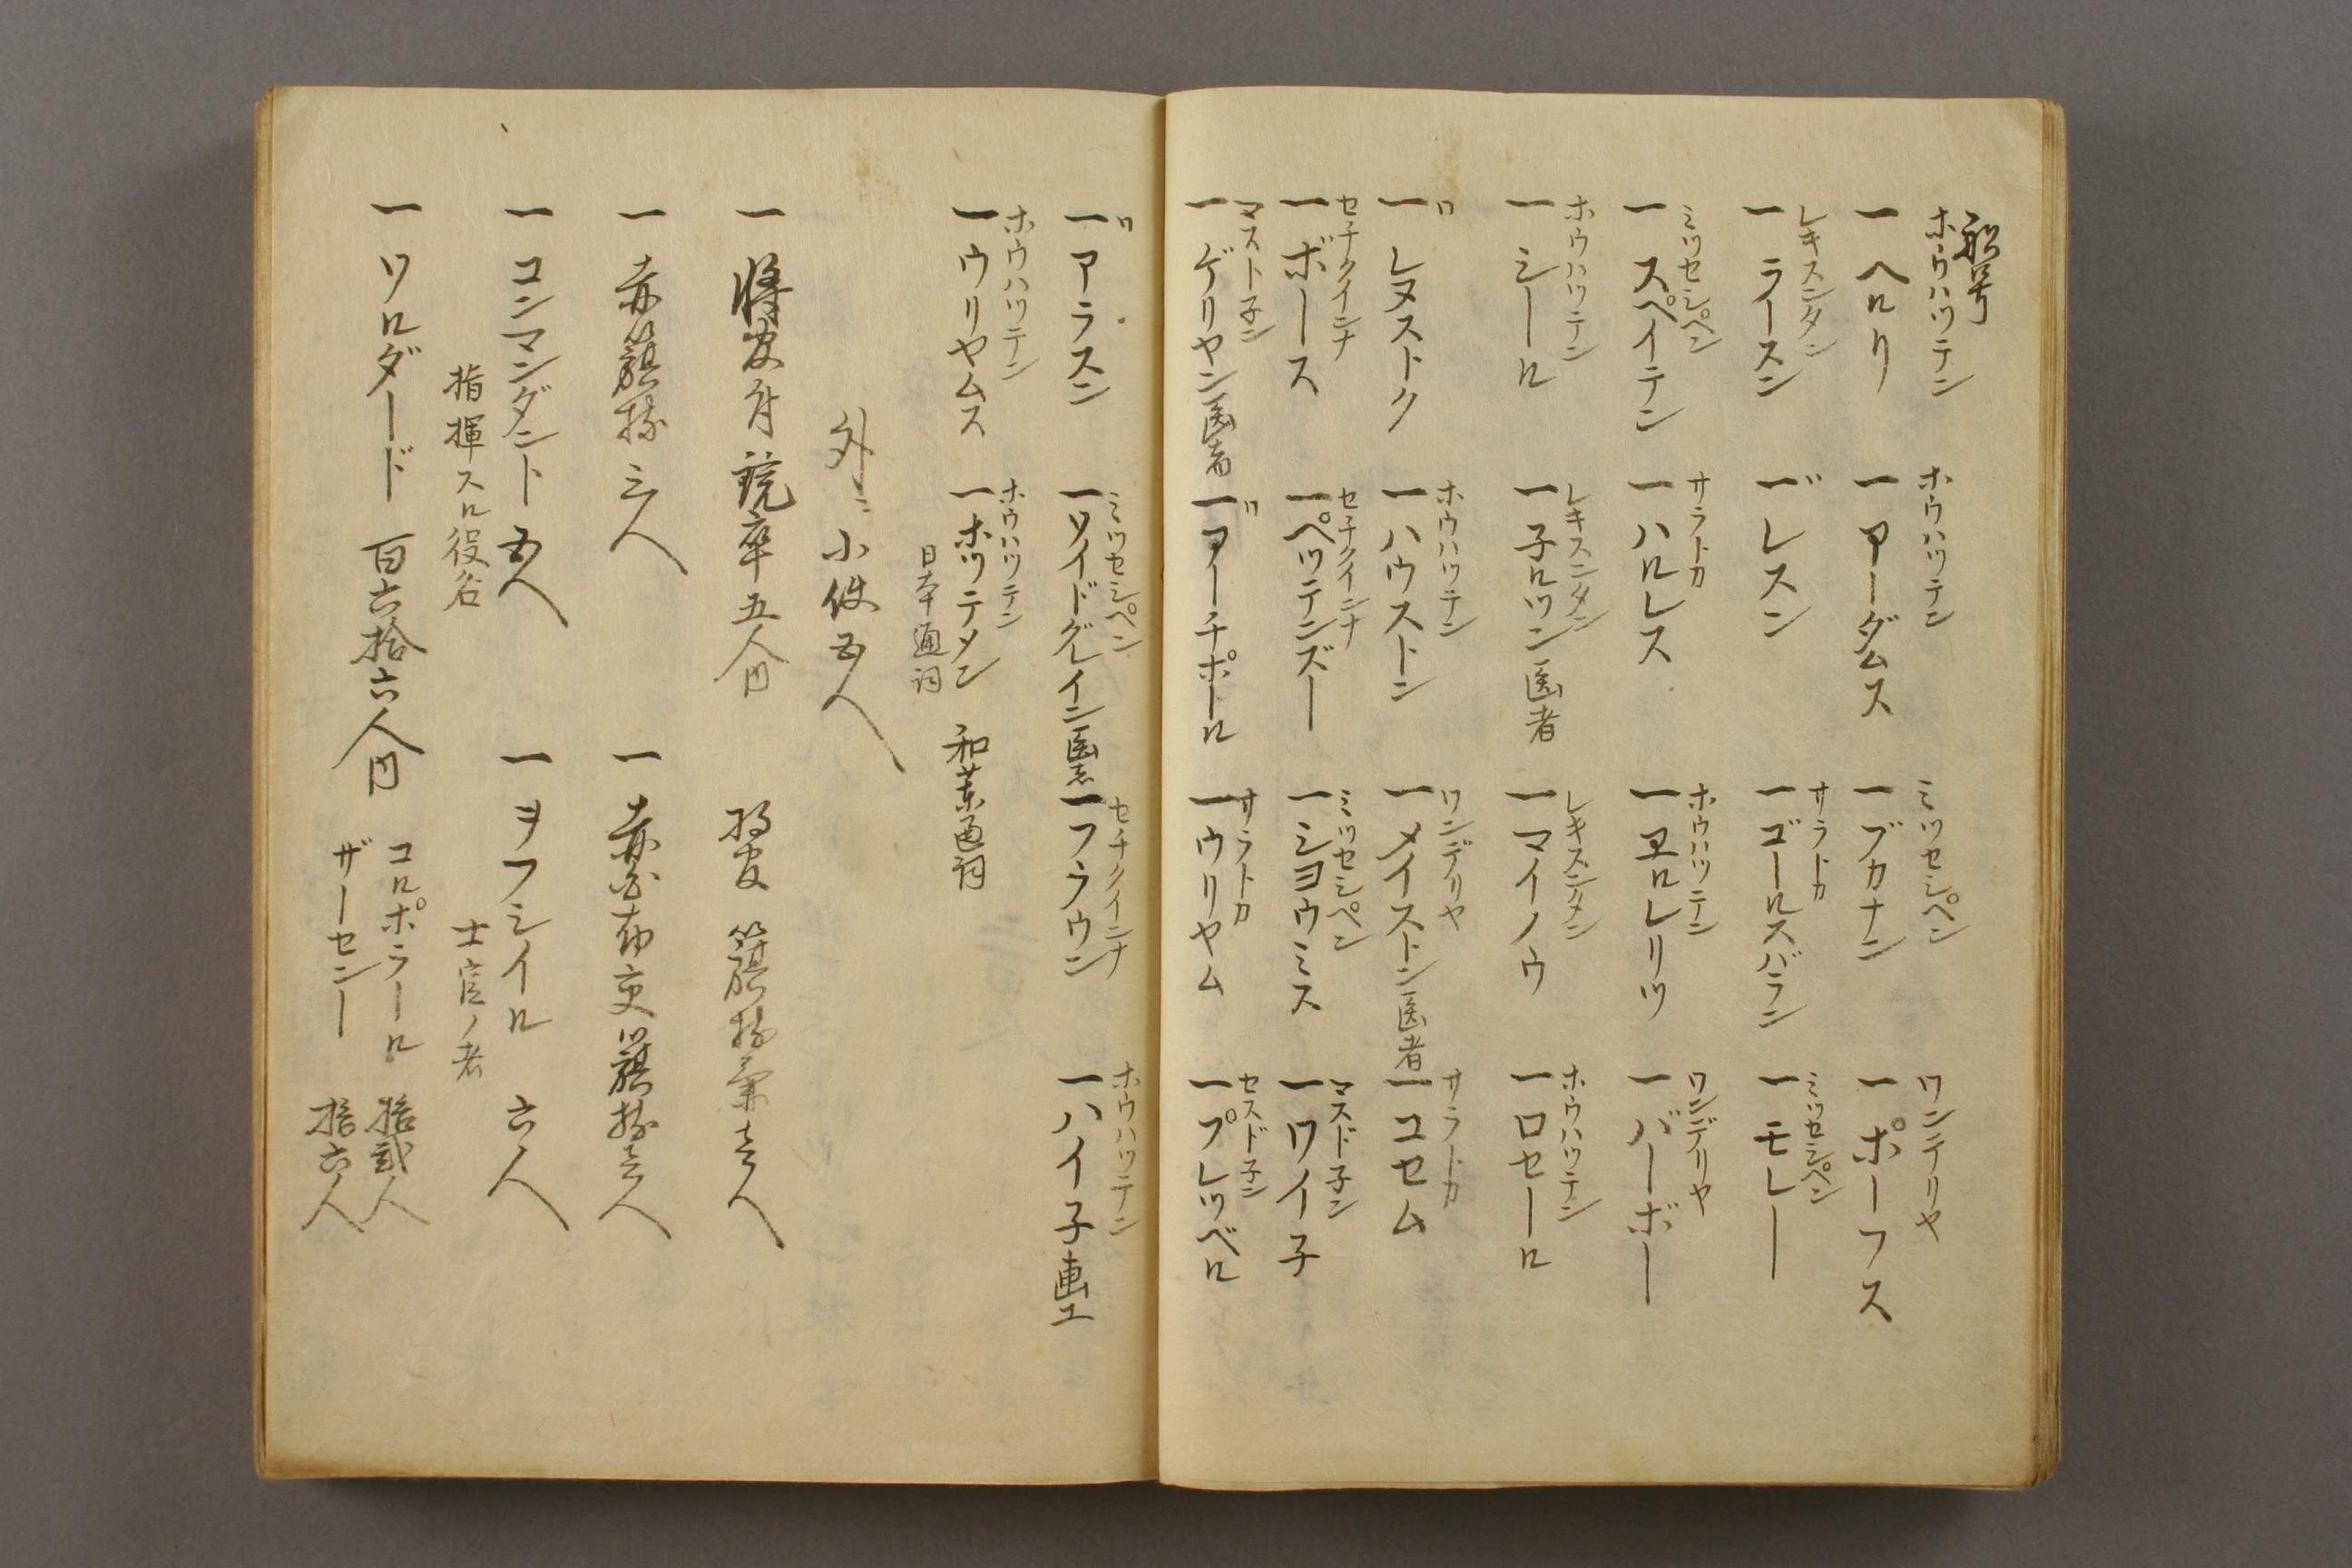 船号
ホウハツテン
一 ヘルリ
ホウハツテン
一 アーダムス
ミツセシペン
一 ブカナン
ワンデリヤ
一 ポーフス
レキスンタン
一 ラースン
〃
一 レスン
サラトカ
一 ゴールスバラン
ミツセシペン
一 モレー
ミツセシペン
一 スペイテン
サラトカ
一 ハルレス
ホウハツテン
一 ヱルレリツ
ワンデリヤ
一 バーボー
ホウハツテン
一 シール
レキスンタン
一 子ルツン 医者
レキスンタン
一 マイノウ
ホウハツテン
一 ロセール
〃
一 レヌストク
ホウハツテン
一 ハウストン
ワンデリヤ
一 メイストン 医者
サラトカ
一 コセム
セチクイニナ
一 ボース
セチクイニナ
一 ペツテンズー
ミツセシペン
一 シヨウミス
マスド子ン
一 ワイ子
マスト子ン
一 ゲリヤン 医者
〃
一 アーチポール
サラトカ
一 ウリヤム
セスド子ン
一 プレツベル
〃
一 アラスン
ミツセシペン
一 ソイドグレイン 医者
セチクイニナ
一 フラウン
ホウハツテン
一 ハイ子 画工
ホウハツテン
一 ウリヤムス
ホウハツテン
一 ホツテメン 和蘭通詞
日本通詞
外ニ 小使五人
一 将官付銃卒五人内
将官籏持 壱人
一 赤籏持 三人
一 赤白布交籏持壱人
一 コンマンダント 五人
指揮スル役名
一 ヲフシイル 六人
士官ノ者
一 ソルダード 百六拾六人内
コルポラール 拾弐人
ザーセンー 拾六人